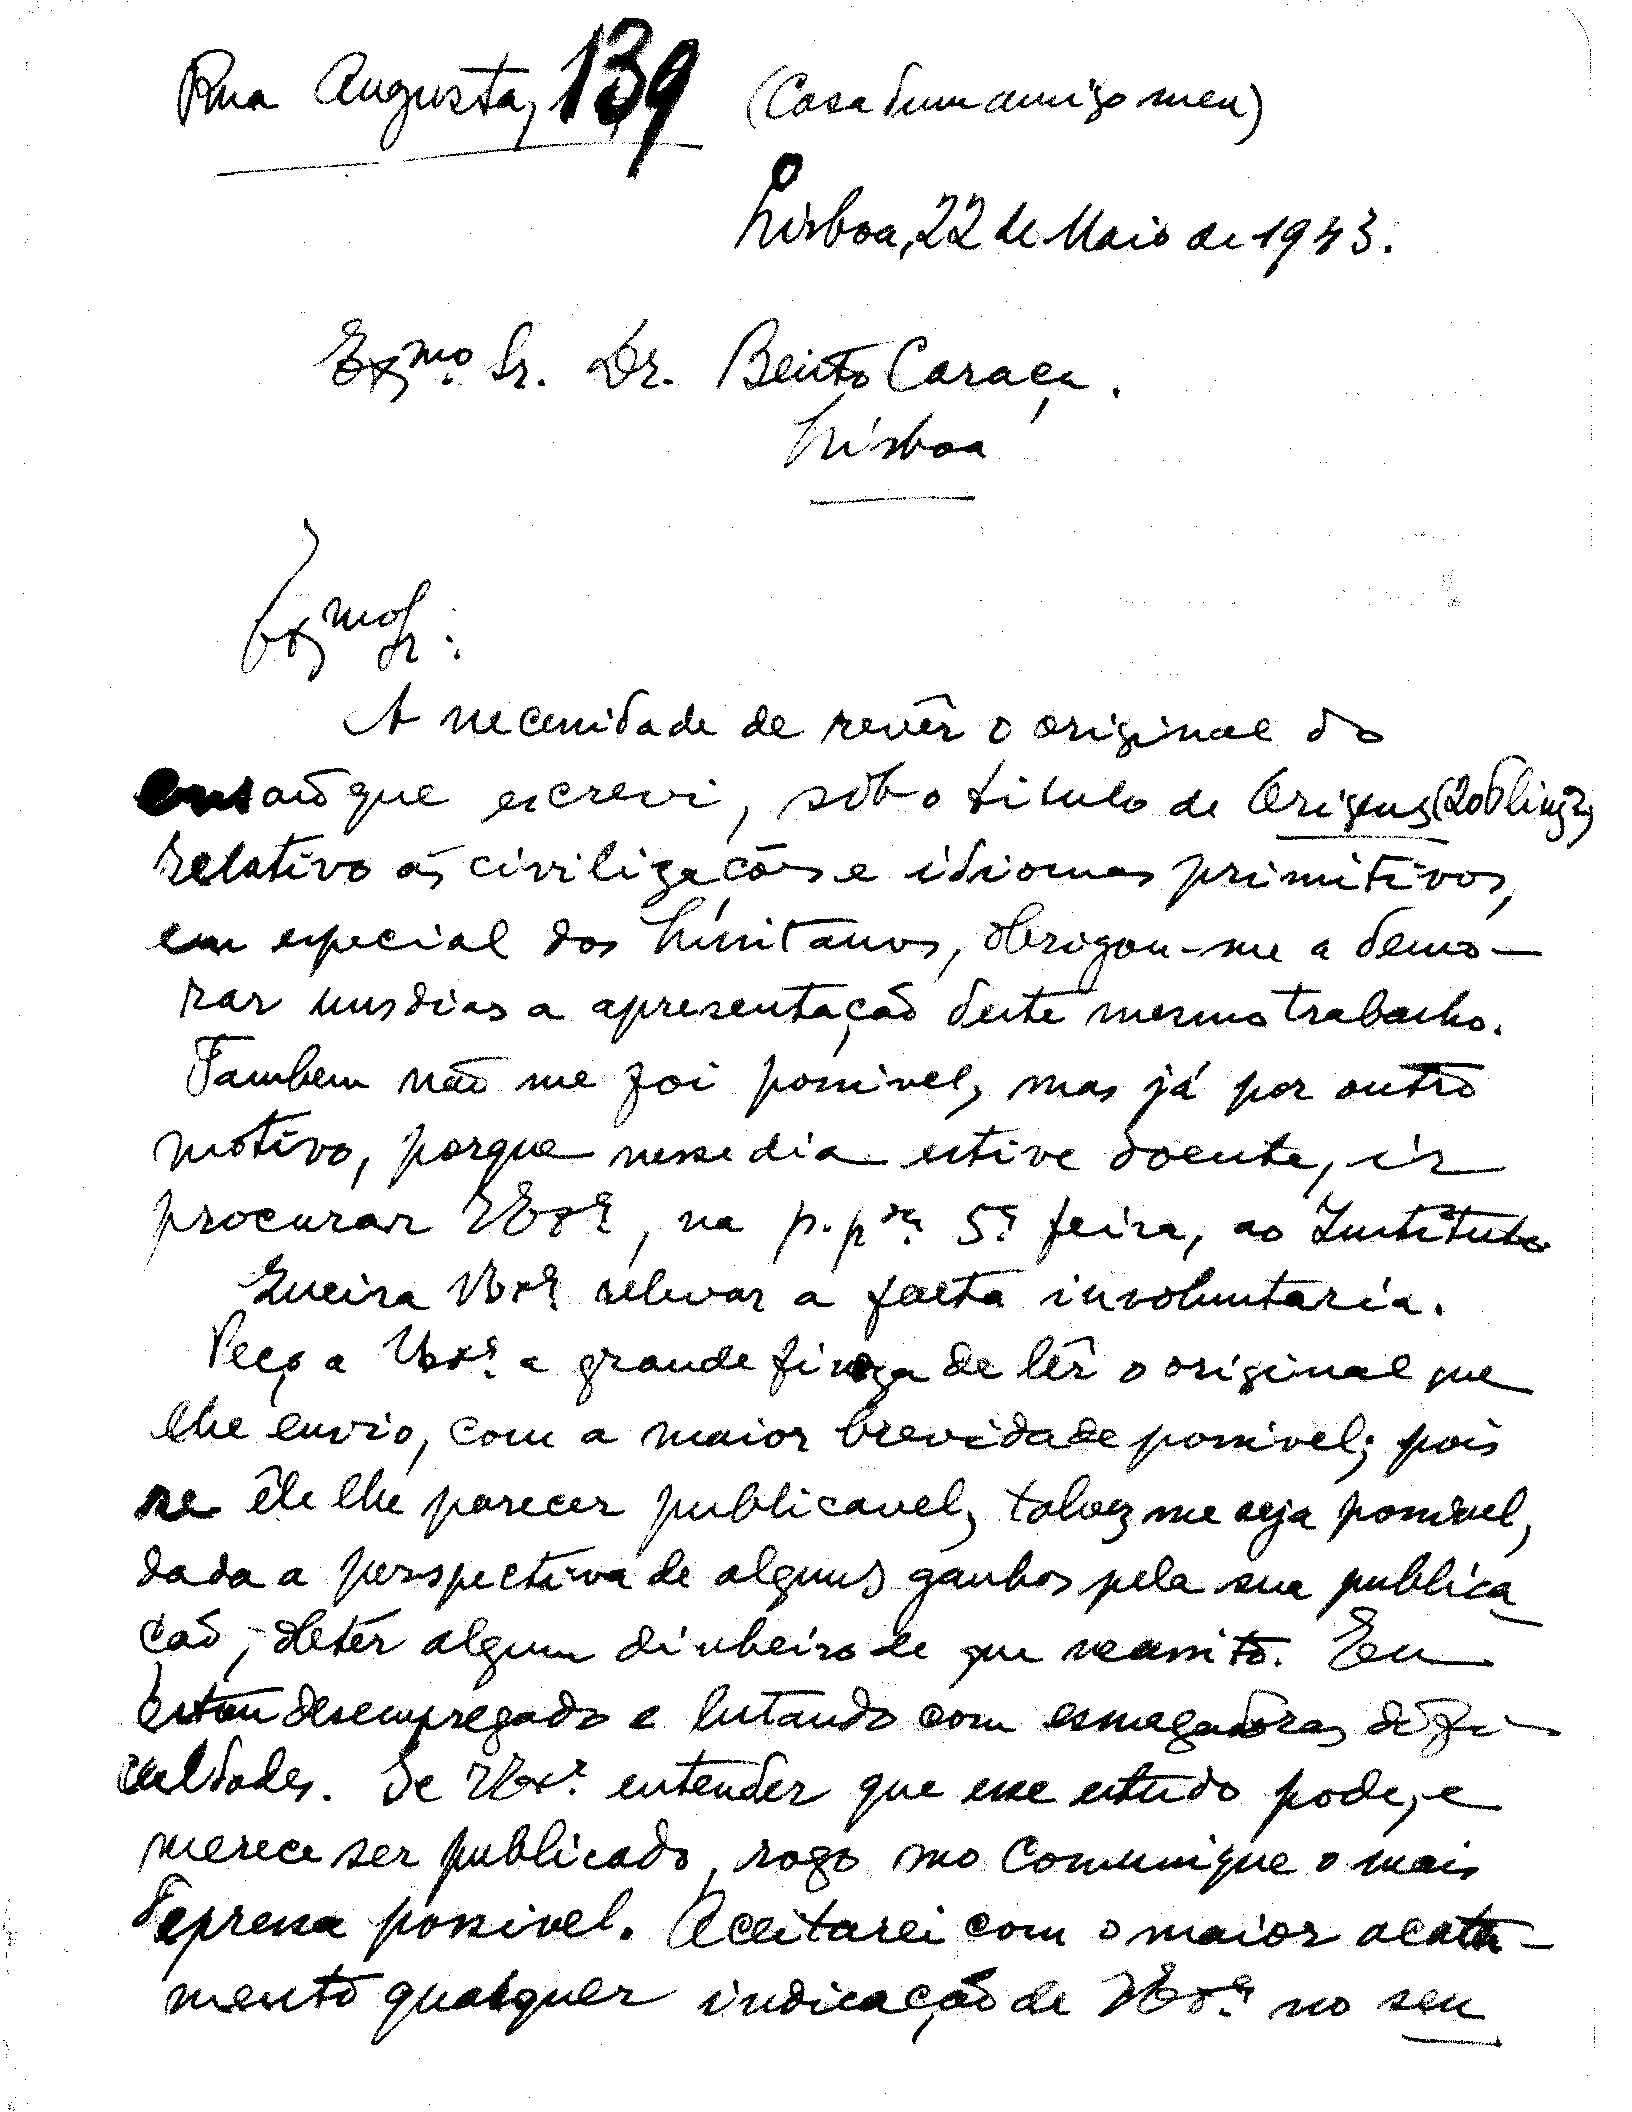 Rua Augusta, 139 (Casa dum amigo meu)
Lisboa, 22 de Maio de 1943.
Exmo. Sr. Dr. Bento Caraça.
Lisboa
Exmo Sr:
A necessidade de revêr o original do
ensaio que escrevi, sob o titulo de Origens
relativo ás civilizações e idiomas primitivos,
em especial dos Lusitanos, obrigou-me a demo-
rar uns dias a apresentação deste mesmo trabalho.
Tambem não me foi possivel, mas já por outro
motivo, porque nesse dia estive doente, ir
procurar V Exª, na p. pda. 5ª feira, ao Instituto
Queira V Exª relevar a falta involuntaria.
Peço a V Exª a grande fineza de lêr o original que
lhe envio, com a maior brevidade possivel; pois
se êle lhe parecer publicavel, talvez me seja possivel,
dada a perspectiva de alguns ganhos pela sua publica
ção, obter algum dinheiro de que necessito. Eu
estou desempregado e lutando com esmagadoras difi-
culdades. Se V Exª entender que esse estudo pode, e
merece ser publicado, rogo mo comunique o mais
depressa possivel. Aceitarei com o maior acata-
mento qualquer indicação de V Exª no seu